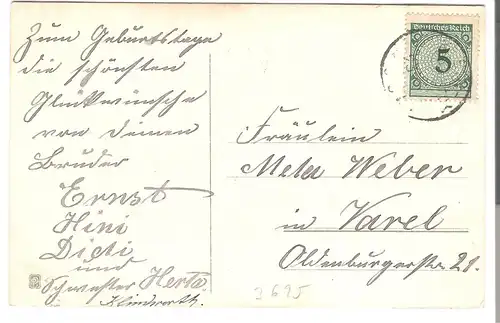 Zum Geburtstage
die schönsten
Glückwünsche
von deinem
Bruder
Ernst
Hini
Dicti
und
Schwester Herta.
Deutsches Reich
5
Fräulein
Meta Weber
in Varel
Oldenburgerstr. 21.
2695